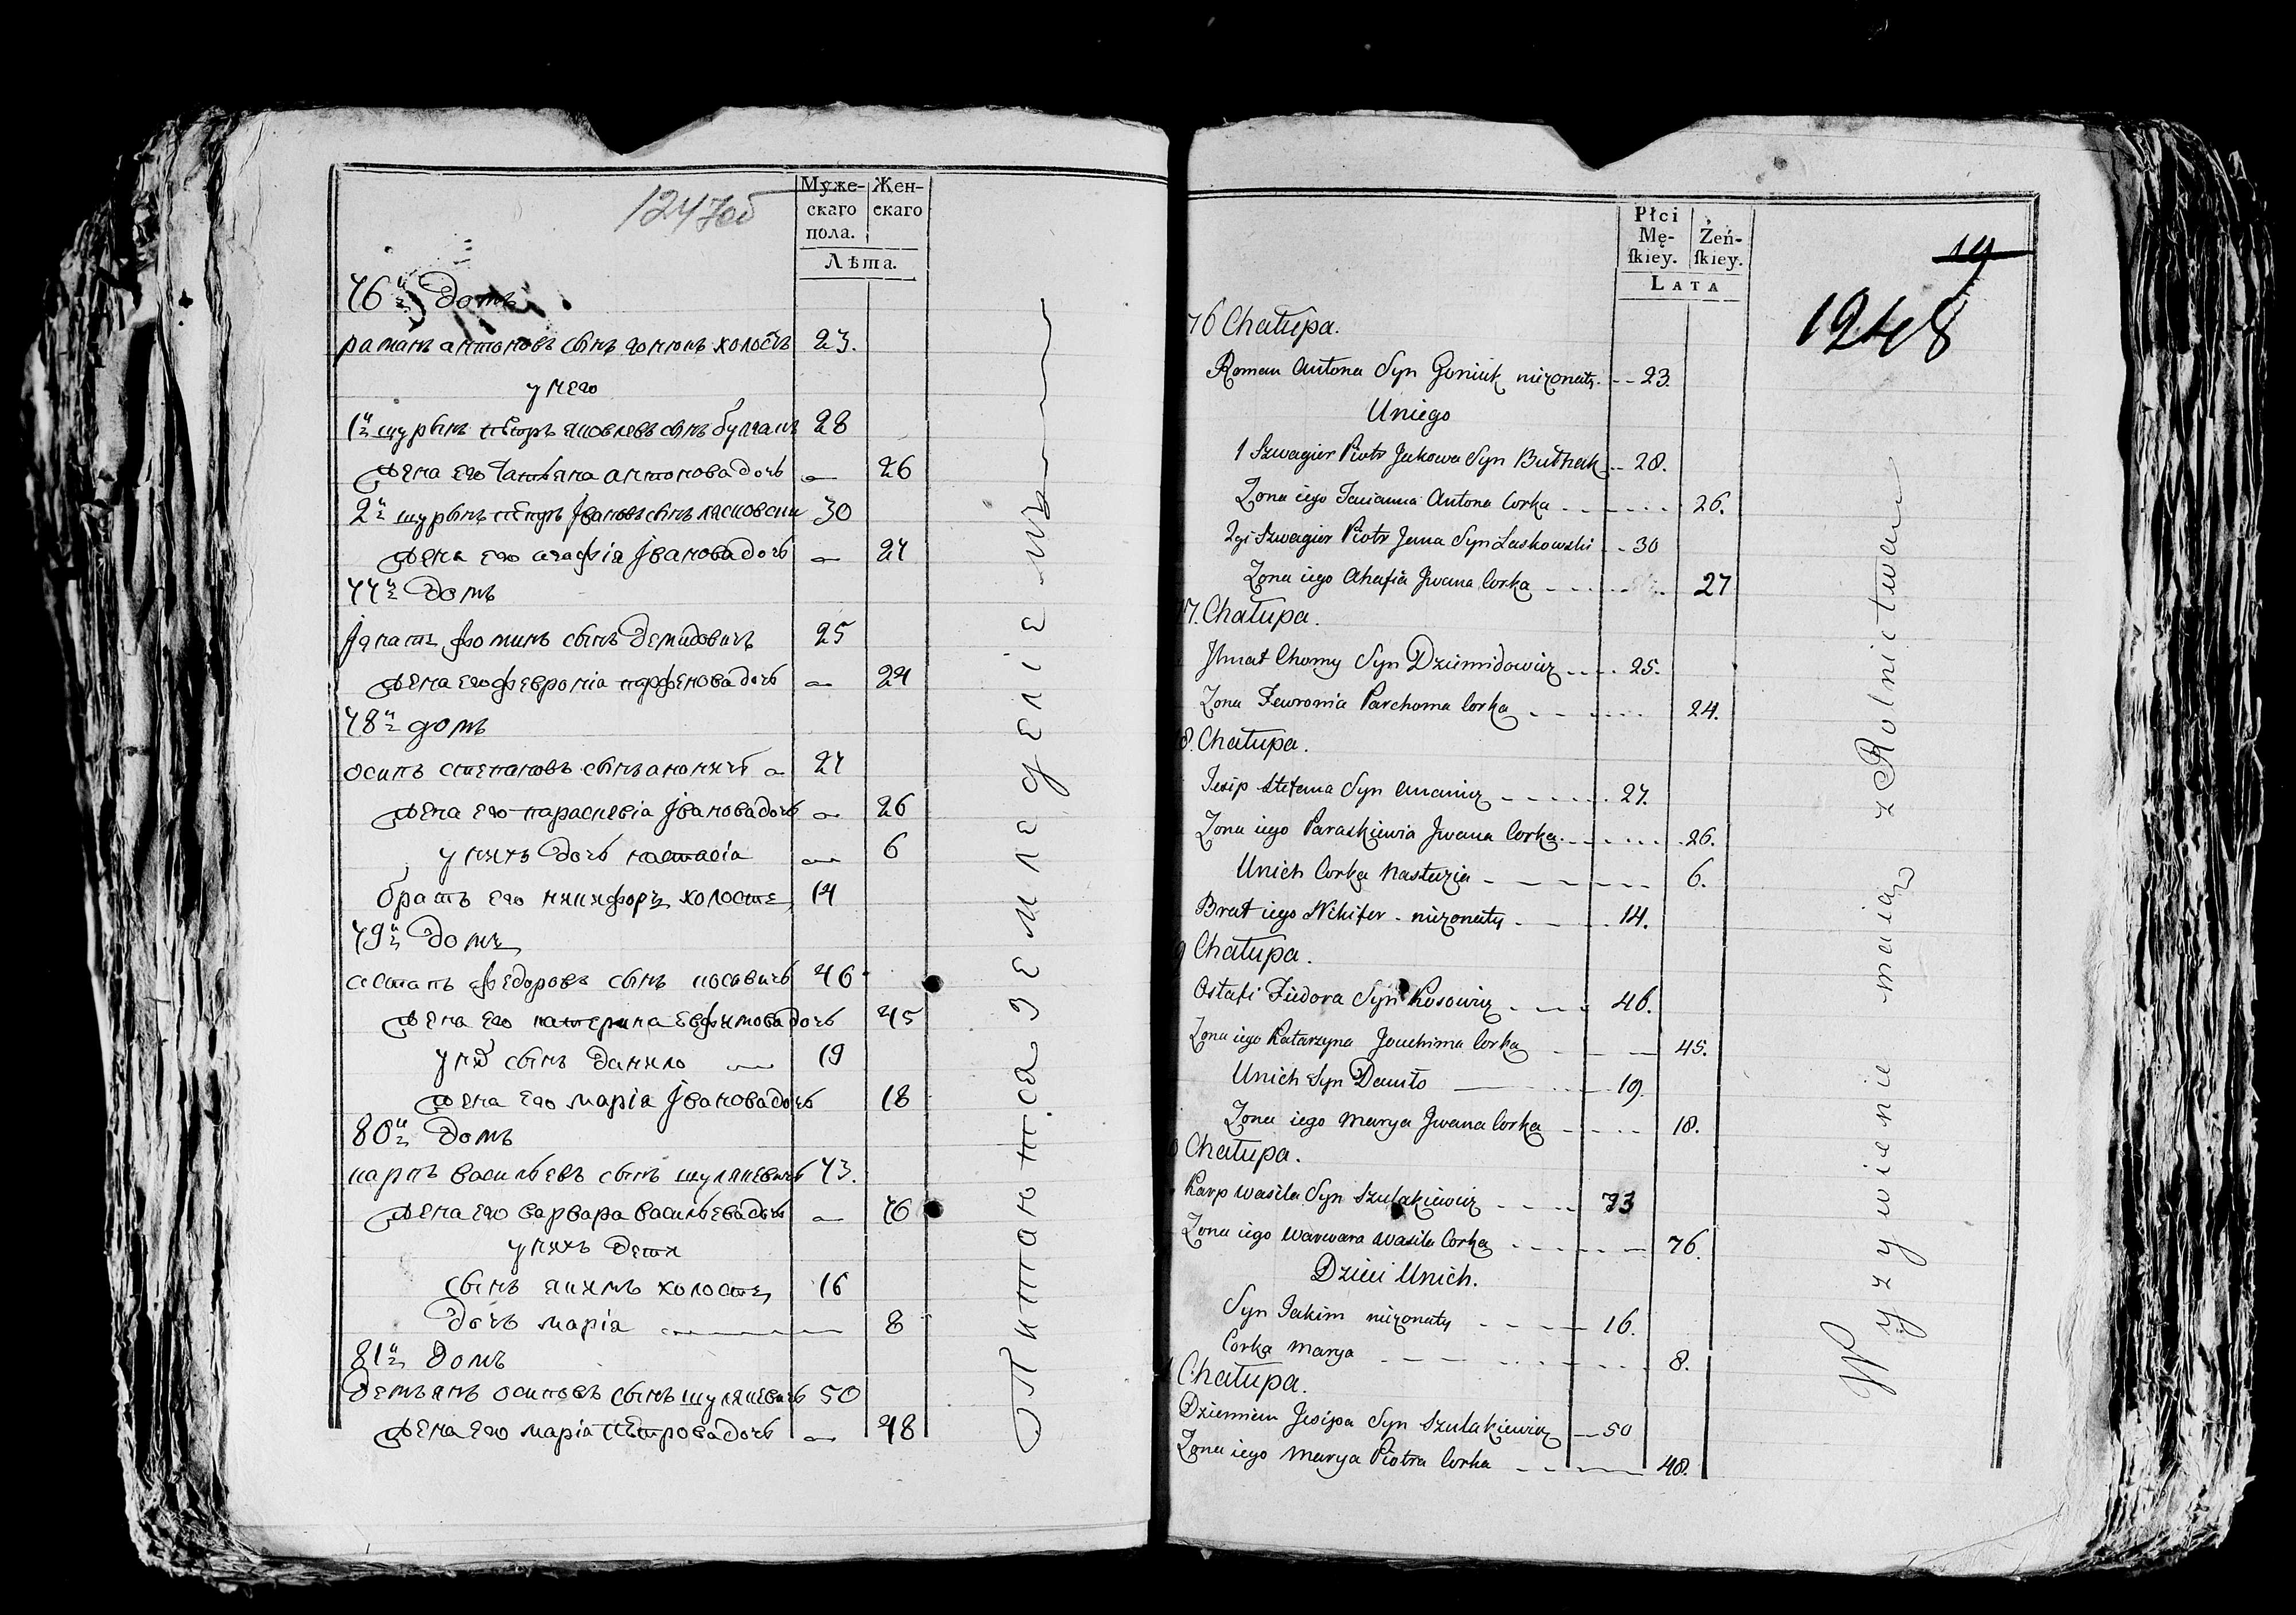 1247об
Муже-
скаго
пола.
Жен-
скаго
Лѣта.
76й Домъ
раманъ антоновъ сынъ гонюкъ холостъ 23.
у него
1й шурынъ пётръ яковлевъ сынъ булгакъ 28
жена его татьяна антонова дочь 26
2й шурынъ пётръ Јвановъ сынъ ласковски 30
жена его агафія Јванова дочь 27
77й Домъ
Јгнатъ фоминъ сынъ Демидовичъ 25
жена его февронія парфенова дочь 24
78й домъ
осипъ степановъ сынъ ананичъ 27
жена его параскевія Јванова дочь 26
у нихъ дочь настасія 6
братъ его никифоръ холостъ 14
79й Домъ
астапъ федоровъ сынъ косовичъ 46
жена его катерина евфимова дочь 45
у них сынъ данило 19
жена его марія Јванова дочь 18
80й Домъ
карпъ васильевъ сынъ шулякевичъ 73.
жена его варвара васильева дочь 76
у нихъ дети
сынъ якимъ холостъ 16
дочь марія 8
81й Домъ
Демьянъ осиповъ сынъ шулякевичъ 50
жена его марія пётрова дочь 48
Питаются земледеліемъ
Płci
Mę-
ſkiey.
Żeń-
ſkiey.
LATA
19
1248
76 Chałupa.
Roman Antona Syn Goniuk nieżonaty. 23.
Uniego
1 Szwagier Piotr Jakowa Syn Bułhak 28.
Zona iego Tacianna Antona Corka 26.
2gi Szwagier Piotr Jana Syn Laskowski 30
Zona iego Ahafia Jwana Corka 27
77. Chałupa.
Jhnat Chomy Syn Dziemidowicz 25.
Zona Fewronia Parchoma Corka 24.
8. Chałupa.
Josip Stefana Syn Ananicz 27.
Zona iego Paraskiewia Jwana Corka 26.
Unich Corka Nastazia 6.
Brat iego Nikifer nieżonaty 14.
9 Chałupa.
Ostafi Fiedora Syn Kosowicz 46.
Zona iego Katarzyna Jouchima Corka 45.
Unich Syn Daniło 19.
Zona iego Marya Jwana Corka 18.
0 Chałupa.
Karp Wasila Syn Szulakiewicz 73
Zona iego Warwara Wasila Corka 76.
Dzieci Unich.
Syn Jakim nieżonaty 16.
Corka Marya 8.
1 Chałupa.
Dziemian Josipa Syn Szulakiewicz 50
Zona iego Marya Piotra Corka 48.
Wyzywienie maią z Rolnictwa